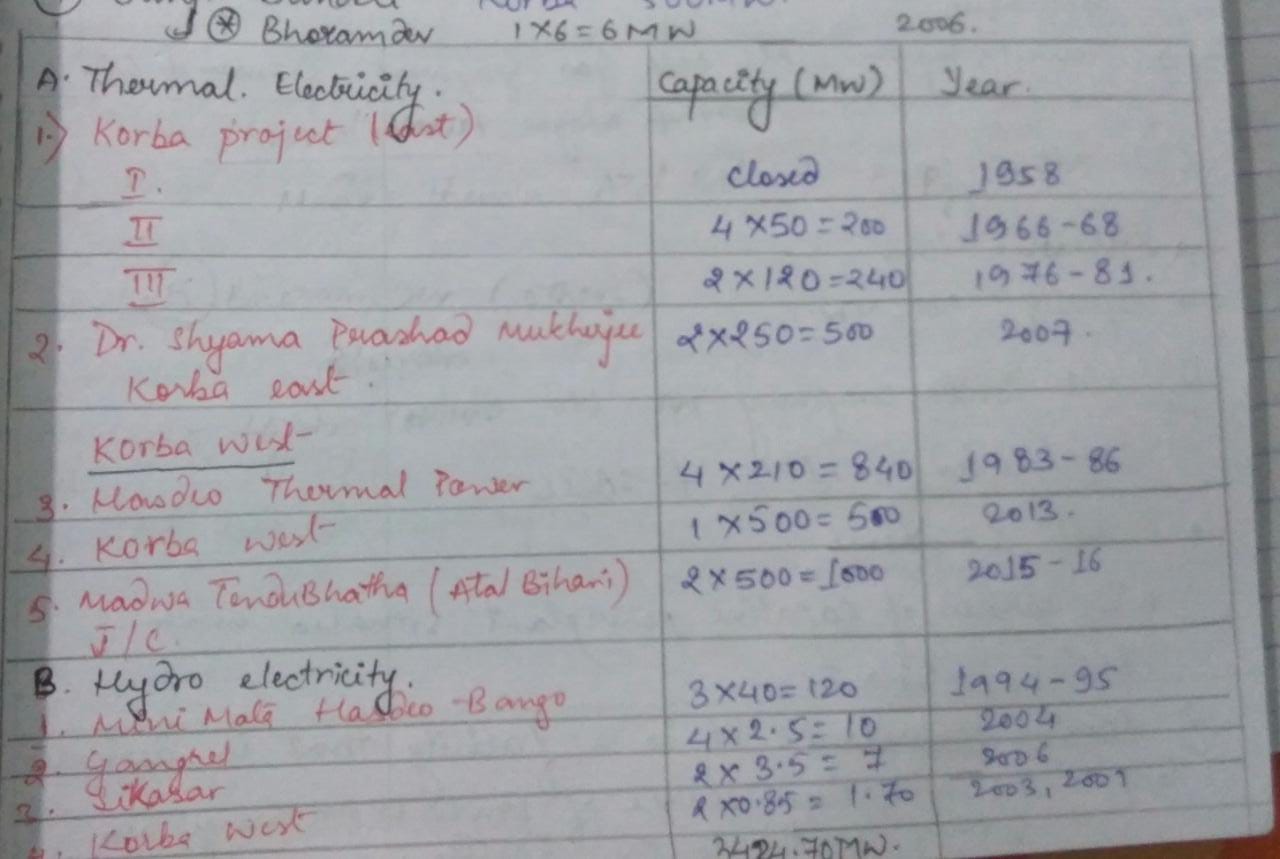 Korba 500MW.
⊛ Bhoramdev 1×6=6MW 2006.
A. Thermal. Electricity. Capacity (MW) Year.
1.) Korba project (East)
I. closed 1958
II 4×50=200 1966-68
III 2×120=240 1976-81.
2. Dr. Shyama Prashad Mukherjee 2×250=500 2007.
Korba east.
Korba west
3. Hasdeo Thermal Power 4×210=840 1983-86
4. Korba west 1×500=500 2013.
5. Madwa TenduBhatha (Atal Bihari) 2×500=1000 2015-16
J/C.
B. Hydro electricity.
1. Mini Mata Hasdeo-Bango 3×40=120 1994-95
2. Gangrel 4×2.5=10 2004
3. Sikasar 2×3.5=7 2006
4. Korba west 2×0.85=1.70 2003, 2009
3424.70MW.